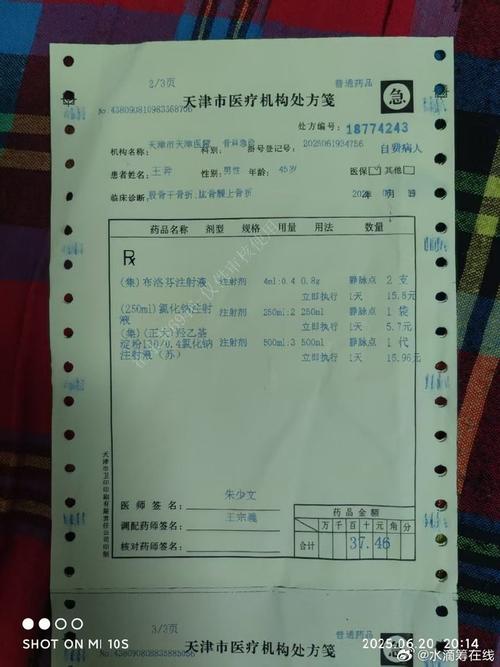 2/3页
普通药品
天津市医疗机构处方笺
急
No.438090810983358756
处方编号: 18774243
机构名称: 天津市天津医院 科别: 骨科急诊 挂号登记号: 2025061934756 自费病人
患者姓名: 王 性别: 男性 年龄: 45岁 医保 其他
临床诊断: 股骨干骨折,肱骨髁上骨折
药品名称 剂型 规格 用量 用法 数量
R
(集)布洛芬注射液 注射剂 4ml:0.4 0.8g 静脉点 2 支
立即执行 1天 15.8元
(250ml)氯化钠注射液 注射剂 250ml:2 250ml 静脉点 1 袋
立即执行 1天 5.7元
(集)(正大)羟乙基
淀粉130/0.4氯化钠 注射剂 500ml:3 500ml 静脉点 1 代
注射液(苏) 立即执行 1天 15.96元
天津市卫印印刷有限责任公司印制
医师签名: 朱少文
调配药师签名: 王宗巍
核对药师签名:
药品金额
万 千 百 十 元 角 分
合计 37.46
3/3页
普通药品
No.438090808835885056
天津市医疗机构处方笺
SHOT ON MI 10S
2025.06.20 20:14
@水滴筹在线